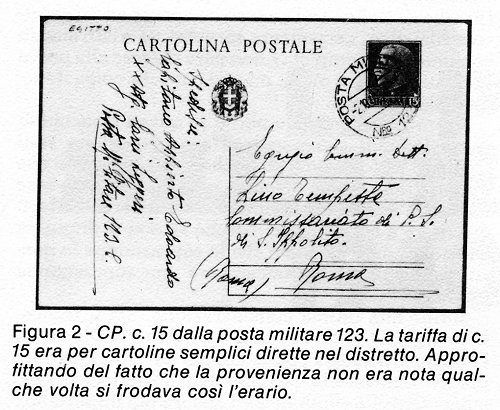 EGITTO
CARTOLINA POSTALE
POSTA MI
NEO 12
Spedisce:
Edoardo
Posta Militare 123 E.
Egregio Comm. Dott.
Lino Tempesta
Commissariato di P. S.
di S. Ippolito.
(Roma) Roma
Figura 2 - CP. c. 15 dalla posta militare 123. La tariffa di c.
15 era per cartoline semplici dirette nel distretto. Appro-
fittando del fatto che la provenienza non era nota qual-
che volta si frodava così l'erario.